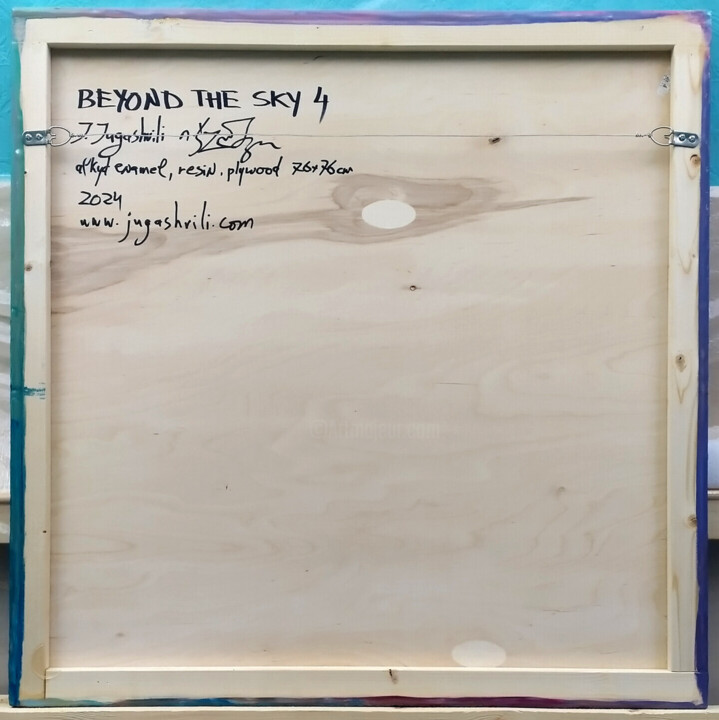 BEYOND THE SKY 4
J. Jugashvili
alkyd enamel, resin, plywood 76x76cm
2024
www.jugashvili.com